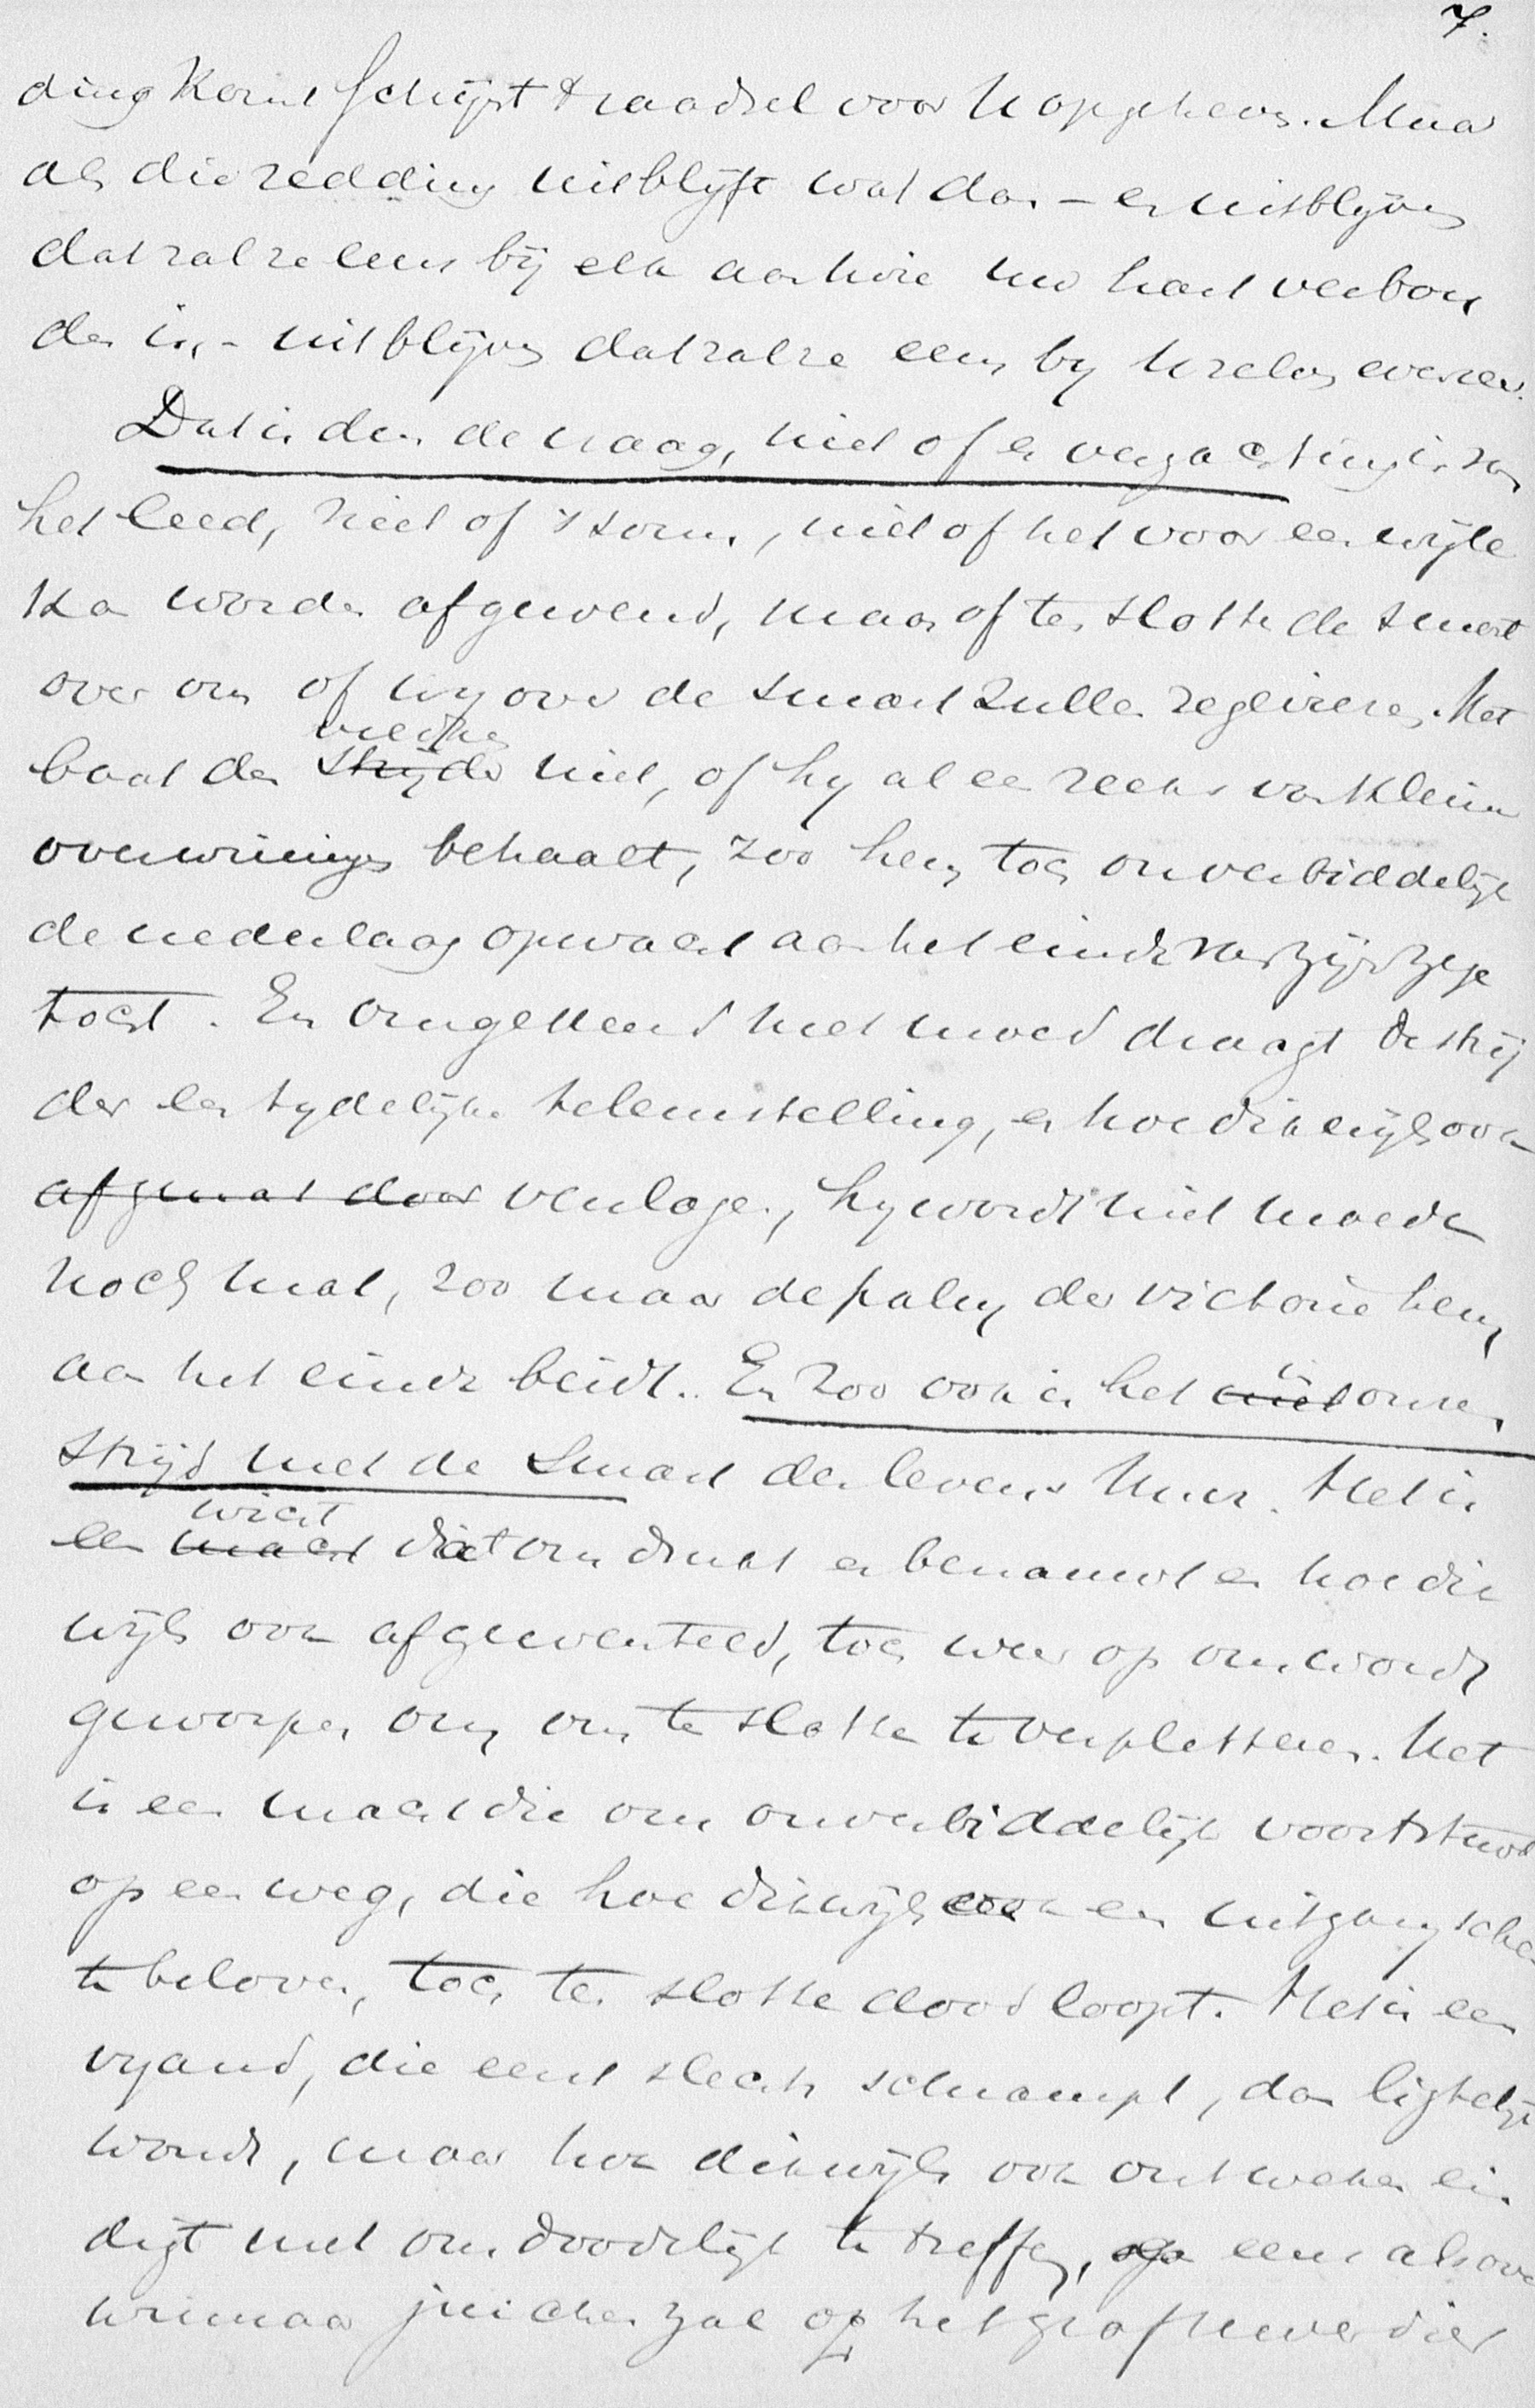 7.
ding komt schijnt 't raadsel voor U opgeheven. Maar
als die redding uitblijft wat dan – en uitblijven
dat zal ze eens bij elk aan wie uw hart verbon
den is, – uitblijven dat zal ze eens by U zelven evenzeer.
Dat is dus de vraag, niet of er verzachting is van
het leed, niet of 't soms, niet of het voor een wijle
kan worden afgewend, maar of ten slotte de smart
over ons of wy over de smart zullen regeeren. Het
baat den strijder niet, of hy al een reeks van kleine
overwinningen behaalt, zoo hem toch onverbiddelijk
de nederlaag opwacht aan het einde van zijn zege
tocht. En omgekeerd met moed draagt de strij
der een tydelijke teleurstelling, en hoe dikwijls ook
afgemat door verslagen, hy wordt niet moede
noch mat, zoo maar de palm der victorie hem
aan het einde beidt. En zoo ook is het in onzen
strijd met de smart des levens M.m. Het is
wicht
een macht dat ons drukt en benauwt en hoe dik
wijls ook afgewenteld, toch weer op ons wordt
geworpen om ons te slotte te verpletteren. Het
is een macht die ons onverbiddelijk voortstuwt
op een weg, die hoe dikwijls ook een uitgang scheen
te beloven, toch ten slotte dood loopt. Het is een
vyand, die eerst slechts schrampt, dan ligtelijk
wondt, maar hoe dikwijls ook ontweken ein
digt met ons doodelijk te treffen, eens als over
winnaar juichen zal op het graf neven dier